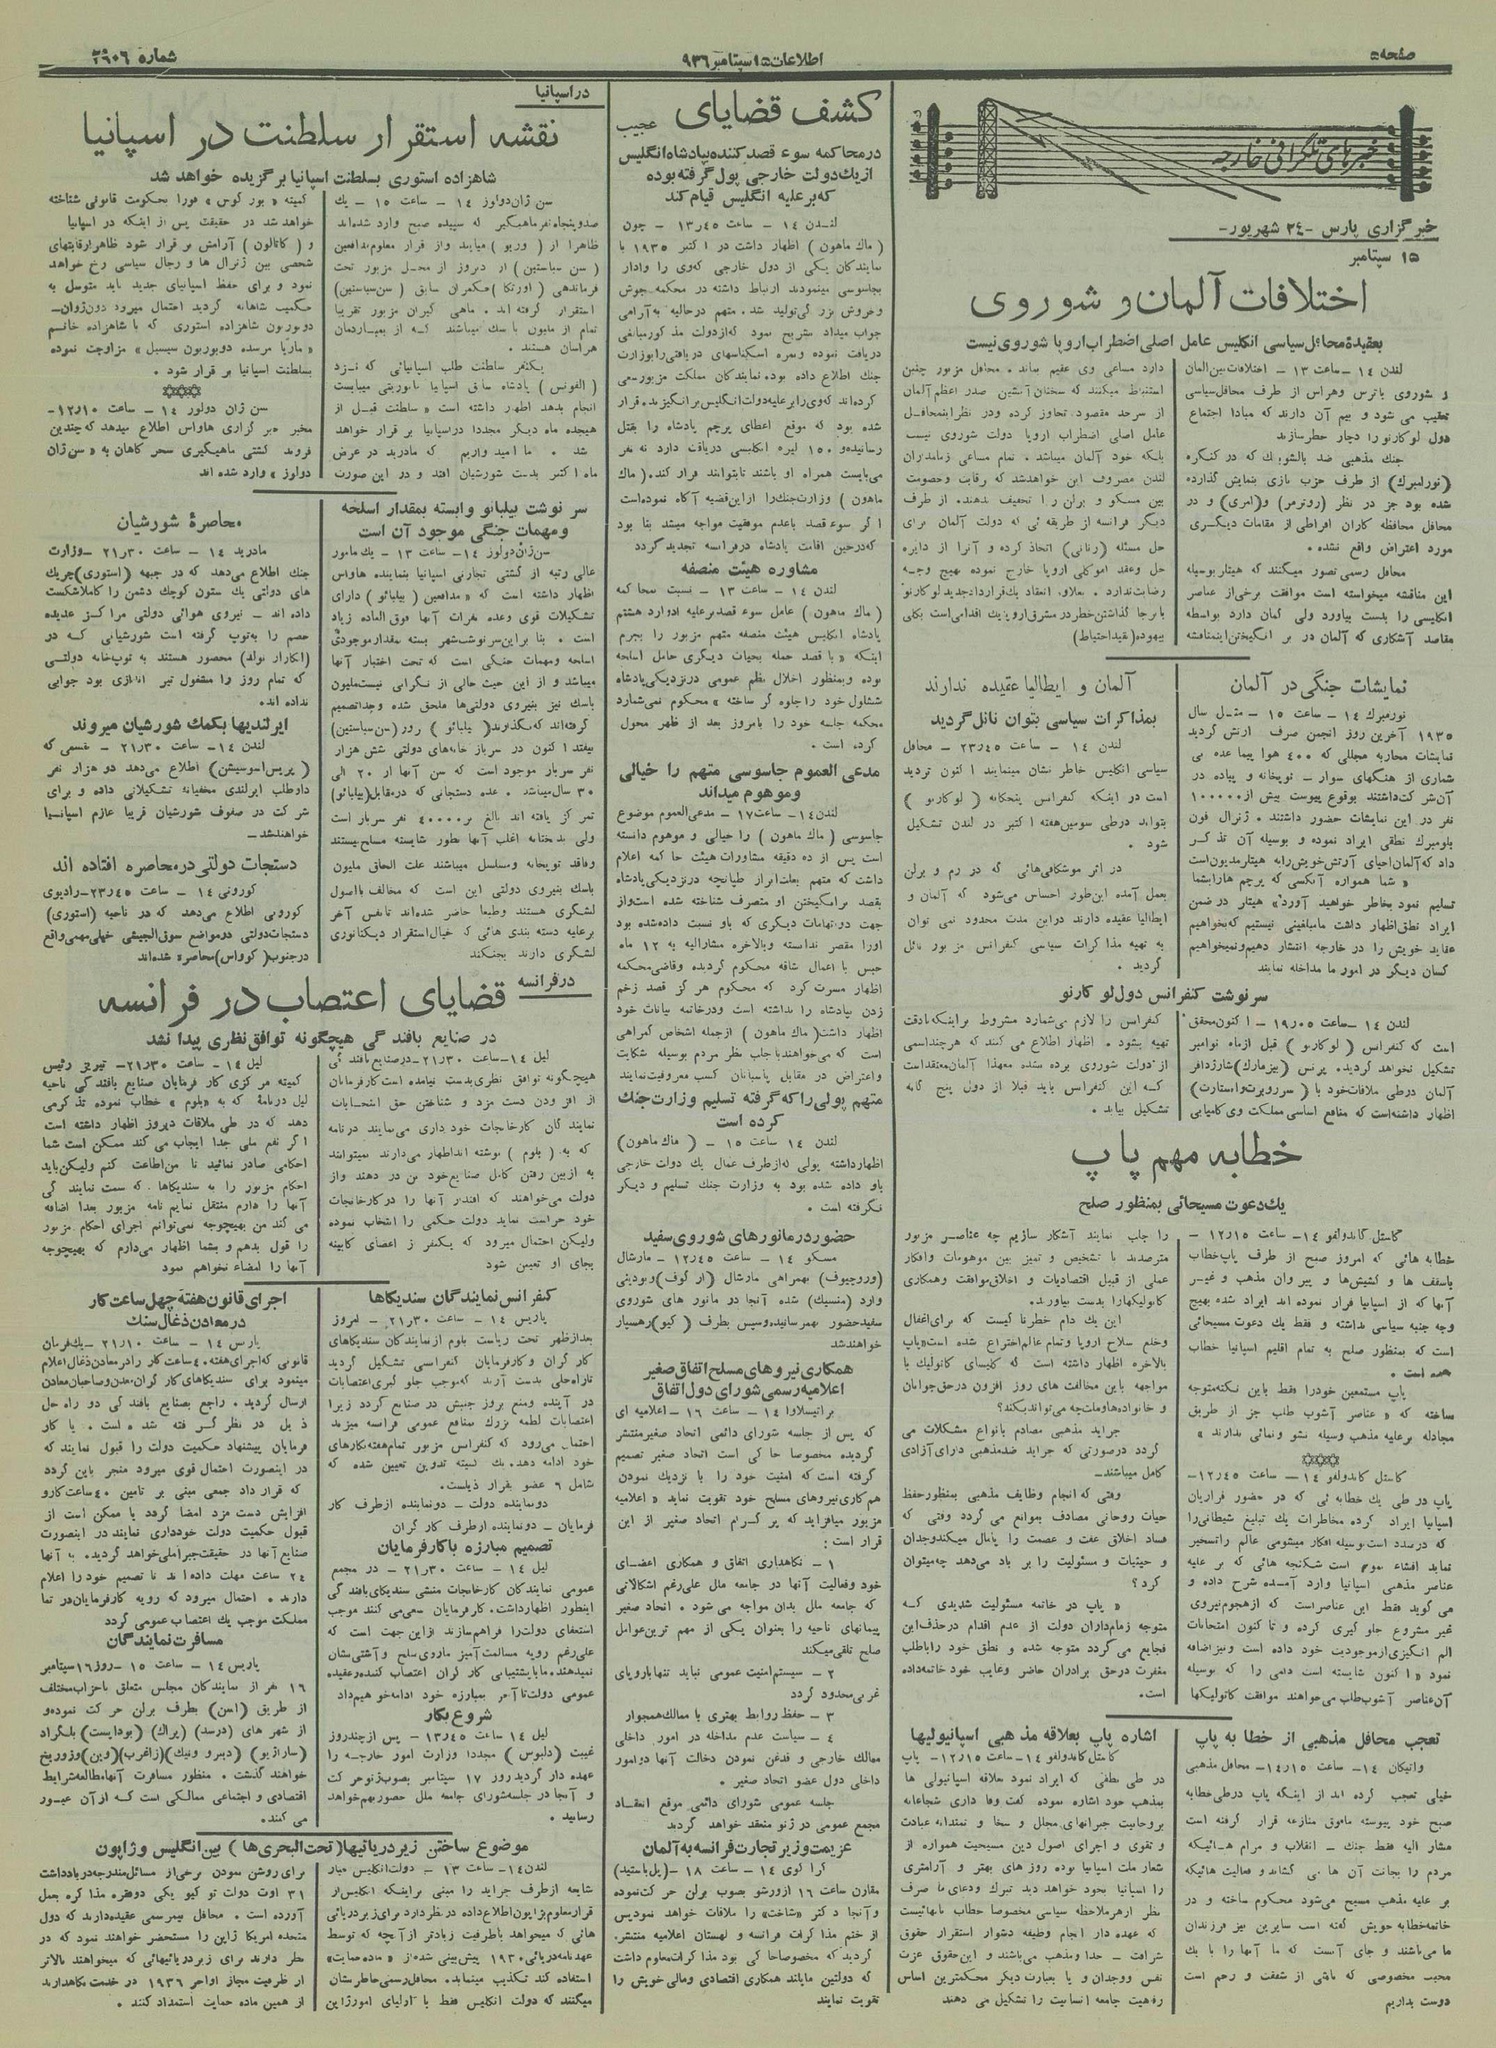 صفحه ۵
اطلاعات ۱۵ سپتامبر ۹۳۶
شماره ۲۹۰۶
خبرهای تلگرافی خارجه
خبرگزاری پارس - ۲۴ شهریور -
۱۵ سپتامبر
اختلافات آلمان و شوروی
بعقیدهٔ محافل سیاسی انگلیس عامل اصلی اضطراب اروپا شوروی نیست
لندن ۱۴ - ساعت ۱۳ - اختلافات بین المان
و شوروی با ترس وهراس از طرف محافل سیاسی
تعقیب می شود و بیم آن دارند که مبادا اجتماع
دول لوکارنو را دچار خطر سازند
جنگ مذهبی ضد بالشویک که در کنگره
(نورامبرک) از طرف حزب نازی بنمایش گذارده
شده بود جز در نظر (روترمر) و (امری) و در
محافل محافظه کاران افراطی از مقامات دیگری
مورد اعتراض واقع نشده .
محافل رسمی تصور میکنند که هیتلر بوسیله
این مناقشه میخواسته است موافقت برخی از عناصر
انگلیسی را بدست بیاورد ولی آلمان دارد بواسطه
مقاصد آشکاری که آلمان در بر انگیختن این مناقشه
دارد مساعی وی عقیم بماند . محافل مزبور چنین
استنباط میکنند که سخنان آتشین صدر اعظم آلمان
از سرحد مقصود تجاوز کرده ودر نظر این محافل
عامل اصلی اضطراب اروپا دولت شوروی نیست
بلکه خود آلمان میباشد . تمام مساعی زمامداران
لندن مصروف این خواهد شد که رقابت وخصومت
بین مسکو و برلن را تخفیف بدهند . از طرف
دیگر فرانسه از طریقه ئی که دولت آلمان برای
حل مسئله (رنانی) اتخاذ کرده و آنرا از دایره
حل وعقد عمومی اروپا خارج نموده بهیچ وجه
رضایت ندارد . بعلاوه انعقاد یک قرارداد جدید لوکارنو
با برجا گذاشتن خطر در مشرق اروپا یک اقدامی است بکلی
بیهوده (بقید احتیاط)
نمایشات جنگی در آلمان
نورمبرک ۱۴ - ساعت ۱۵ - مثل سال
۱۹۳۵ آخرین روز انجمن صرف ارتش گردید
نمایشات محاربه مجللی که ۴۰۰ هوا پیما عده بی
شماری از هنگهای سوار - توپخانه و پیاده در
آن شرکت داشتند بوقوع پیوست بیش از ۱۰۰۰۰۰
نفر در این نمایشات حضور داشتند . ژنرال فون
بلومبرک نطقی ایراد نموده و بوسیله آن تذکر
داد که آلمان احیای آرتش خویش را به هیتلر مدیون است
« شما همواره آنکسی که پرچم ها را بشما
تسلیم نمود بخاطر خواهید آورد» هیتلر در ضمن
ایراد نطق اظهار داشت ما مبلغینی نیستیم که بخواهیم
عقاید خویش را در خارجه انتشار دهیم و نمیخواهیم
کسان دیگر در امور ما مداخله نمایند
آلمان و ایطالیا عقیده ندارند
بمذاکرات سیاسی بتوان نائل گردید
لندن ۱۴ - ساعت ۲۳٫۴۵ - محافل
سیاسی انگلیس خاطر نشان مینمایند اکنون تردید
است در اینکه کنفرانس پنجگانه ( لوکارنو )
بتواند در طی سومین هفته اکتبر در لندن تشکیل
شود .
در اثر موشکافی هائی که در رم و برلن
بعمل آمده این طور احساس می شود که آلمان و
ایطالیا عقیده دارند در این مدت محدود نمی توان
به تهیه مذاکرات سیاسی کنفرانس مزبور نائل
گردید .
سرنوشت کنفرانس دول لوکارنو
لندن ۱۴ - ساعت ۱۹٫۰۵ - اکنون محقق
است که کنفرانس ( لوکارنو ) قبل از ماه نوامبر
تشکیل نخواهد گردید. پرنس (بیزمارک) شارژدافر
آلمان در طی ملاقات خود با ( سر روبرت وانستارت)
اظهار داشته است که منافع اساسی مملکت وی کامیابی
کنفرانس را لازم می شمارد مشروط بر اینکه با دقت
تهیه بشود . اظهار اطلاع می کنند که هرچند اسمی
از دولت شوروی برده نشده معهذا آلمان معتقد است
که این کنفرانس باید قبلا از دول پنج گانه
تشکیل بیابد .
خطابه مهم پاپ
یک دعوت مسیحائی بمنظور صلح
کاستل گاندولفو ۱۴ - ساعت ۱۲٫۱۵ -
خطابه هائی که امروز صبح از طرف پاپ خطاب
باسقف ها و کشیش ها و پیروان مذهب و غیر
آنها که از اسپانیا فرار نموده اند ایراد شده بهیچ
وجه جنبه سیاسی نداشته و فقط یک دعوت مسیحائی
است که بمنظور صلح به تمام اقلیم اسپانیا خطاب
شده است .
پاپ مستمعین خود را فقط باین نکته متوجه
ساخته که « عناصر آشوب طلب جز از طریق
مجادله بر علیه مذهب وسیله نشو و نمائی ندارند »
کاستل گاندولفو ۱۴ - ساعت ۱۲٫۴۵ -
پاپ در طی یک خطابه ئی که در حضور فراریان
اسپانیا ایراد کرده مخاطرات یک تبلیغ شیطانی را
که درصدد است بوسیله افکار میشومی عالم را تسخیر
نماید افشاء نموده است شکنجه هائی که بر علیه
عناصر مذهبی اسپانیا وارد آمده شرح داده و
می گوید فقط این عناصر است که از هجوم نیروی
غیر مشروع جلو گیری کرده و تا کنون امتحانات
الم انگیزی از موجودیت خود داده است و نیز اضافه
نمود « اکنون شایسته است دامی را که بوسیله
آن عناصر آشوب طلب می خواهند موافقت کاتولیکها
را جلب نمایند آشکار سازیم چه عناصر مزبور
مترصدند با تشخیص و تمیز بین موهومات و افکار
عملی از قبیل اقتصادیات و اخلاق موافقت و همکاری
کاتولیکها را بدست بیاورند .
این یک دام خطرناکیست که برای اغفال
و خلع سلاح اروپا و تمام عالم اختراع شده است» پاپ
بالاخره اظهار داشته است که کلیسای کاتولیک با
مواجهه باین مخالفت های روز افزون در حق جوانان
و خانواده ها و ملت چه می تواند بکند؟
جراید مذهبی مصادم بانواع مشکلات می
گردد درصورتی که جراید ضد مذهبی دارای آزادی
کامل میباشند -
وقتی که انجام وظایف مذهبی بمنظور حفظ
حیات روحانی مصادف بموانع می گردد وقتی که
فساد اخلاق عفت و عصمت را پایمال میکند وجدان
و حیثیات و مسئولیت را بر باد می دهد چه میتوان
کرد ؟
« پاپ در خاتمه مسئولیت شدیدی که
متوجه زمامداران دولت از عدم اقدام در حذف این
فجایع می گردد متوجه شده و نطق خود را با طلب
مغفرت در حق برادران حاضر و غایب خود خاتمه داده
است .
تعجب محافل مذهبی از خطابه پاپ
واتیکان ۱۴ - ساعت ۱۴٫۱۵ - محافل مذهبی
خیلی تعجب کرده اند از اینکه پاپ در طی خطابه
صبح خود پیوسته مافوق منازعه قرار گرفته است
مشار الیه فقط جنگ - انقلاب و مرام هائیکه
مردم را بجانب آن ها می کشاند و فعالیت هائیکه
بر علیه مذهب مسیح می شود محکوم ساخته و در
خاتمه خطابه خویش گفته است سایرین نیز فرزندان
ما می باشند و جای آنست که ما آنها را با یک
محبت مخصوصی که ناشی از شفقت و رحم است
دوست بداریم
اشاره پاپ بعلاقه مذهبی اسپانیولیها
کاستل گاندولفو ۱۴ - ساعت ۱۲٫۱۵ - پاپ
در طی نطقی که ایراد نمود بعلاقه اسپانیولی ها
بمذهب خود اشاره نموده گفت وفا داری شجاعانه
بروحانیت جبرانهای مجلل و سخا و تمندانه عبادت
و تقوی و اجرای اصول دین مسیحیت همواره از
شعار ملت اسپانیا بوده روز های بهتر و آرامتری
را اسپانیا بخود خواهد دید تبرک و دعای ما صرف
نظر از هر ملاحظه سیاسی مخصوصا خطاب بآنهائیست
که عهده دار انجام وظیفه دشوار استقرار حقوق
شرافت - خدا و مذهب می باشند و این حقوق عزت
نفس و وجدان و یا بعبارت دیگر محکمترین اساس
رفاهیت جامعه انسانیت را تشکیل می دهند
کشف قضایای عجیب
در محاکمه سوء قصد کننده بپادشاه انگلیس
از یک دولت خارجی پول گرفته بوده
که بر علیه انگلیس قیام کند
لندن ۱۴ - ساعت ۱۳٫۴۵ - چون
(ماک ماهون) اظهار داشت در اکتبر ۱۹۳۵ با
نمایندگان یکی از دول خارجی که وی را وادار
بجاسوسی مینمودند ارتباط داشته در محکمه جوش
وخروش بزرگی تولید شد. متهم در حالیه به آرامی
جواب میداد تشریح نمود که از دولت مذکور مبالغی
دریافت نموده ونمره اسکناسهای دریافتی را بوزارت
جنگ اطلاع داده بود. نمایندگان مملکت مزبور می
کرده اند که وی را بر علیه دولت انگلیس برانگیزند. قرار
شده بود که موقع اعطای پرچم پادشاه را بقتل
رسانیده و ۱۵۰ لیره انگلیسی دریافت دارد نه نفر
می بایست همراه او باشند تا بتوانند فرار کند . (ماک
ماهون ) وزارت جنگ را از این قضیه آگاه نموده است
اگر سوء قصد با عدم موفقیت مواجه میشد بنا بود
که در حین اقامت پادشاه در فرانسه تجدید گردد
مشاوره هیئت منصفه
لندن ۱۴ - ساعت ۱۳ - نسبت بمحاکمه
( ماک ماهون ) عامل سوء قصد بر علیه ادوارد هشتم
پادشاه انگلیس هیئت منصفه متهم مزبور را بجرم
اینکه « با قصد حمله بحیات دیگری حامل اسلحه
بوده و بمنظور اخلال نظم عمومی در نزدیکی پادشاه
ششلول خود را جلوه گر ساخته » محکوم نمی شمارد
محکمه جلسه خود را بامروز بعد از ظهر محول
کرده است .
مدعی العموم جاسوسی متهم را خیالی
و موهوم میداند
لندن ۱۴ - ساعت ۱۷ - مدعی العموم موضوع
جاسوسی ( ماک ماهون ) را خیالی و موهوم دانسته
است پس از ده دقیقه مشاورات هیئت حاکمه اعلام
داشت که متهم بعلت ابراز طپانچه در نزدیکی پادشاه
بقصد برانگیختن او متصرف شناخته شده است و از
جهت دو اتهامات دیگری که باو نسبت داده شده بود
او را مقصر ندانسته و بالاخره مشارالیه به ۱۲ ماه
حبس با اعمال شاقه محکوم گردیده و قاضی محکمه
اظهار مسرت کرد که محکوم هرگز قصد زخم
زدن بپادشاه را نداشته است و درخاتمه بیانات خود
اظهار داشت (ماک ماهون ) از جمله اشخاص گمراهی
است که می خواهند با جلب نظر مردم بوسیله شکایت
و اعتراض در مقابل پاسبانان کسب معروفیت نمایند
متهم پولی را که گرفته تسلیم وزارت جنگ
کرده است
لندن ۱۴ ساعت ۱۵ - ( ماک ماهون)
اظهار داشته پولی که از طرف عمال یک دولت خارجی
باو داده شده بود به وزارت جنگ تسلیم و دیگر
نگرفته است .
حضور در مانورهای شوروی سفید
مسکو ۱۴ - ساعت ۱۲٫۴۵ - مارشال
(وروچیوف) بهمراهی مارشال (ارگوف) و بودینی
وارد (منسیک) شده آنجا در مانور های شوروی
سفید حضور بهم رسانیده و سپس بطرف ( کیو) رهسپار
خواهند شد
همکاری نیروهای مسلح اتفاق صغیر
اعلامیه رسمی شورای دول اتفاق
براتیسلاوا ۱۴ - ساعت ۱۶ - اعلامیه ای
که پس از جلسه شورای دائمی اتحاد صغیر منتشر
گردیده مخصوصا حاکی است اتحاد صغیر تصمیم
گرفته است که امنیت خود را با نزدیک نمودن
همکاری نیروهای مسلح خود تقویت نماید « اعلامیه
مزبور میافزاید که پرگرام اتحاد صغیر از این
قرار است :
۱ - نگاهداری اتفاق و همکاری اعضای
خود وفعالیت آنها در جامعه ملل علی رغم اشکالاتی
که جامعه ملل بدان مواجه می شود . اتحاد صغیر
پیمانهای ناحیه را بعنوان یکی از مهم ترین عوامل
صلح تلقی میکند
۲ - سیستم امنیت عمومی نباید تنها باروپای
غربی محدود گردد
۳ - حفظ روابط بهتری با ممالک همجوار
۴ - سیاست عدم مداخله در امور داخلی
ممالک خارجی و قدغن نمودن دخالت آنها در امور
داخلی دول عضو اتحاد صغیر .
جلسه عمومی شورای دائمی موقع انعقاد
مجمع عمومی در ژنو منعقد خواهد گردید
عزیمت وزیر تجارت فرانسه به آلمان
کراکوی ۱۴ - ساعت ۱۸ - (پل باستید)
مقارن ساعت ۱۶ از ورشو بصوب برلن حرکت نموده
و آنجا دکتر «شاخت» را ملاقات خواهد نمود پس
از ختم مذاکرات فرانسه و لهستان اعلامیه منتشر
گردید که مخصوصا حاکی بود مذاکرات معلوم داشت
که دولتین مایلند همکاری اقتصادی و مالی خویش را
تقویت نمایند
در اسپانیا
نقشه استقرار سلطنت در اسپانیا
شاهزاده استوری بسلطنت اسپانیا برگزیده خواهد شد
سن ژان دولوز ۱۴ - ساعت ۱۵ - یک
صد و پنجاه نفر ماهیگیر که سپیده صبح وارد شده اند
ظاهرا از ( وریو ) میایند و از قرار معلوم مدافعین
( سن سباستین ) از دیروز از محل مزبور تحت
فرماندهی ( اورتگا ) حکمران سابق (سن سباستین)
استقرار گرفته اند . ماهی گیران مزبور تقریبا
تمام از ملیون باسک میباشند که از بمباردمان
هراسان هستند .
یکنفر سلطنت طلب اسپانیائی که نزد
( الفونس ) پادشاه سابق اسپانیا ماموریتی میبایست
انجام بدهد اظهار داشته است « سلطنت قبل از
هیجده ماه دیگر مجددا در اسپانیا بر قرار خواهد
شد . ما امیدواریم که مادرید در عرض
ماه اکتبر بدست شورشیان افتد و در این صورت
کمیته « بورگوس » فورا بحکومت قانونی شناخته
خواهد شد در حقیقت پس از اینکه در اسپانیا
و ( کاتالون ) آرامش بر قرار شود ظاهرا رقابتهای
شخصی بین ژنرال ها و رجال سیاسی رخ خواهد
نمود و برای حفظ اسپانیای جدید باید متوسل به
حکمیت شاهانه گردید احتمال میرود دون ژوان -
دو بوربون شاهزاده استوری که با شاهزاده خانم
« ماریا مرسده دو بوربون سیسیل » مزاوجت نموده
بسلطنت اسپانیا بر قرار شود .
سن ژان دولوز ۱۴ - ساعت ۱۲٫۱۰ -
مخبر خبر گزاری هاواس اطلاع میدهد که چندین
فروند کشتی ماهیگیری سحر گاهان به « سن ژان
دولوز » وارد شده اند
سرنوشت بیلبائو وابسته بمقدار اسلحه
و مهمات جنگی موجود آن است
سن ژان دولوز ۱۴ - ساعت ۱۳ - یک مامور
عالی رتبه از کشتی تجارتی اسپانیا بنماینده هاواس
اظهار داشته است که «مدافعین (بیلبائو) دارای
تشکیلات قوی وعده نفرات آنها فوق العاده زیاد
است . بنا بر این سرنوشت شهر بسته بمقدار موجودی
اسلحه ومهمات جنگی است که تحت اختیار آنها
میباشد و از این حیث خالی از نگرانی نیست ملیون
باسک نیز بنیروی دولتی ها ملحق شده و جدا تصمیم
گرفته اند که نگذارند ( بیلبائو ) بروز (سن سباستین)
بیفتد اکنون در سرباز خانه های دولتی شش هزار
نفر سرباز موجود است که سن آنها از ۲۰ الی
۳۰ سال میباشد . عده دستجاتی که در مقابل (بیلبائو)
تمرکز یافته اند بالغ بر ۴۰۰۰۰ نفر سرباز است
ولی بدبختانه اغلب آنها بطور شایسته مسلح نیستند
وفاقد توپخانه و مسلسل میباشند علت الحاق ملیون
باسک بنیروی دولتی این است که مخالف با اصول
لشگری هستند و طبعا حاضر شده اند تا نفس آخر
بر علیه دسته بندی هائی که خیال استقرار دیکتاتوری
لشگری دارند بجنگند
محاصرهٔ شورشیان
مادرید ۱۴ - ساعت ۲۱٫۳۰ - وزارت
جنگ اطلاع می دهد که در جبهه (استوری) چریک
های دولتی یک ستون کوچک دشمن را کاملا شکست
داده اند - نیروی هوائی دولتی مراکز عدیده
خصم را به توپ گرفته است شورشیانی که در
(الکازار تولد) محصور هستند به توپخانه دولتی
که تمام روز را مشغول تیر اندازی بود جوابی
نداده اند .
ایرلندیها بکمک شورشیان میروند
لندن ۱۴ - ساعت ۲۱٫۳۰ - قسمی که
( پرس اسوسیشن) اطلاع می دهد دو هزار نفر
داوطلب ایرلندی مخفیانه تشکیلاتی داده و برای
شرکت در صفوف شورشیان قریبا عازم اسپانیا
خواهند شد -
دستجات دولتی در محاصره افتاده اند
کورونی ۱۴ - ساعت ۲۳٫۴۵ - رادیوی
کورونی اطلاع می دهد که در ناحیه (استوری)
دستجات دولتی دو مواضع سوق الجیشی خیلی مهمی واقع
در جنوب ( کرواس) محاصره شده اند
در فرانسه
قضایای اعتصاب در فرانسه
در صنایع بافندگی هیچگونه توافق نظری پیدا نشد
لیل ۱۴ - ساعت ۲۱٫۳۰ - در صنایع بافندگی
هیچگونه توافق نظری بدست نیامده است کارفرمایان
از افزودن دست مزد و شناختن حق انتخابات
نمایندگان کارخانجات خودداری می نمایند در نامه
که به ( بلوم ) نوشته اند اظهار می دارند نمیتوانند
به ازبین رفتن کامل صنایع خود تن در دهند و از
دولت می خواهند که اقتدار آنها را در کارخانجات
خود حراست نماید دولت حکمی را انتخاب نموده
ولیکن احتمال میرود که یکنفر از اعضای کابینه
بجای او تعیین شود
لیل ۱۴ - ساعت ۲۱٫۳۰ - تیریز رئیس
کمیته مرکزی کار فرمایان صنایع بافندگی ناحیه
لیل در نامهٔ که به «بلوم » خطاب نموده تذکر می
دهد که در طی ملاقات دیروز اظهار داشته است
اگر نفع ملی جدا ایجاب می کند ممکن است شما
احکامی صادر نمائید تا من اطاعت کنم ولیکن باید
احکام مزبور را به سندیکاها که سمت نمایندگی
آنها را دارم منتقل نمایم نامه مزبور بعدا اضافه
می کند من بهیچوجه نمی توانم اجرای احکام مزبور
را قول بدهم و بشما اظهار می دارم که بهیچوجه
آنها را امضاء نخواهم نمود
کنفرانس نمایندگان سندیکاها
پاریس ۱۴ - ساعت ۲۱٫۳۰ - امروز
بعد از ظهر تحت ریاست بلوم از نمایندگان سندیکاهای
کار گران و کارفرمایان کنفرانسی تشکیل گردید
تا راه حلی بدست آرند که موجب جلو گیری اعتصابات
در آینده ومنع بروز جنبش در صنایع گردد زیرا
اعتصابات لطمه بزرگ بمنافع عمومی فرانسه میزند
احتمال می رود که کنفرانس مزبور تمام هفته بکارهای
خود ادامه دهد. یک کمیته تدوین تعیین شده که
شامل ۶ عضو بقرار ذیلست .
دو نماینده دولت - دو نماینده از طرف کار
فرمایان - دو نماینده از طرف کار گران
تصمیم مبارزه با کارفرمایان
لیل ۱۴ - ساعت ۲۱٫۳۰ - در مجمع
عمومی نمایندگان کارخانجات منشی سندیکای بافندگی
اینطور اظهار داشت . کار فرمایان سعی می کنند موجب
استعفای دولت را فراهم سازند از این جهت است که
علی رغم رویه مسالمت آمیز ما روی صلح و آشتی نشان
نمیدهند. ما با پشتیبانی کار گران اعتصاب کننده و عقیده
عمومی دولت تا آخر بمبارزه خود ادامه خواهیم داد
شروع بکار
لیل ۱۴ ساعت ۱۳٫۴۵ - پس از چند روز
غیبت (دلبوس ) مجددا وزارت امور خارجه را
عهده دار گردید روز ۱۷ سپتامبر بصوب ژنو حرکت
و آنجا در جلسه شورای جامعه ملل حضور بهم خواهد
رسانید .
اجرای قانون هفتهٔ چهل ساعت کار
در معادن ذغال سنگ
پاریس ۱۴ - ساعت ۲۱٫۱۰ - یک فرمان
قانونی که اجرای هفته ۴۰ ساعت کار را در معادن ذغال اعلام
مینمود برای سندیکاهای کار گران معدن و صاحبان معادن
ارسال گردید . راجع بصنایع بافندگی دو راه حل
ذیل در نظر گرفته شده است . یا کار
فرمایان پیشنهاد حکمیت دولت را قبول نمایند که
در اینصورت احتمال قوی میرود منجر باین گردد
که قرار داد جمعی مبنی بر تامین ۴۰ ساعت کار و
افزایش دست مزد امضا گردد یا ممکن است از
قبول حکمیت دولت خودداری نمایند در اینصورت
صنایع آنها در حقیقت جبرا ملی خواهد گردید . به آنها
۲۴ ساعت مهلت داده اند تا تصمیم خود را اعلام
دارند . احتمال میرود که رویه کارفرمایان در تمام
مملکت موجب یک اعتصاب عمومی گردد
مسافرت نمایندگان
پاریس ۱۴ - ساعت ۱۵ - روز ۱۶ سپتامبر
۱۶ نفر از نمایندگان مجلس متعلق باحزاب مختلف
از طریق (امن) بطرف برلن حرکت نموده و
از شهر های (درسد) (پراک) (بوداپست) بلگراد
(سارایو) (دبرونیک) (زاغرب) (وین) و زوریخ
خواهند گذشت . منظور مسافرت آنها مطالعه شرایط
اقتصادی و اجتماعی ممالکی است که از آن عبور
می کنند .
موضوع ساختن زیردریائیها (تحت البحری ها ) بین انگلیس و ژاپون
لندن ۱۴ - ساعت ۱۳ - دولت انگلیس اخبار
شایعه از طرف جراید را مبنی بر اینکه انگلیس از
قرار معلوم بژاپون اطلاع داده در نظر دارد برای زیردریائی
هائی که میخواهد با ظرفیت زیادتر از آنچه که توسط
عهد نامه دریائی ۱۹۳۰ پیش بینی شده از « ماده حمایت»
استفاده کند تکذیب مینماید . محافل رسمی خاطر نشان
میکنند که دولت انگلیس فقط با اولیای امور ژاپن
برای روشن نمودن برخی از مسائل مندرجه در یادداشت
۳۱ اوت دولت توکیو یکی دو فقره مذاکره بعمل
آورده است . محافل نیمرسمی عقیده دارند که دول
متحده امریکا ژاپن را مستحضر خواهند نمود که در
نظر دارند برای زیردریائیهائی که میخواهند بالاتر
از ظرفیت مجاز اواخر ۱۹۳۶ در خدمت نگاهدارند
از همین ماده حمایت استمداد کنند .